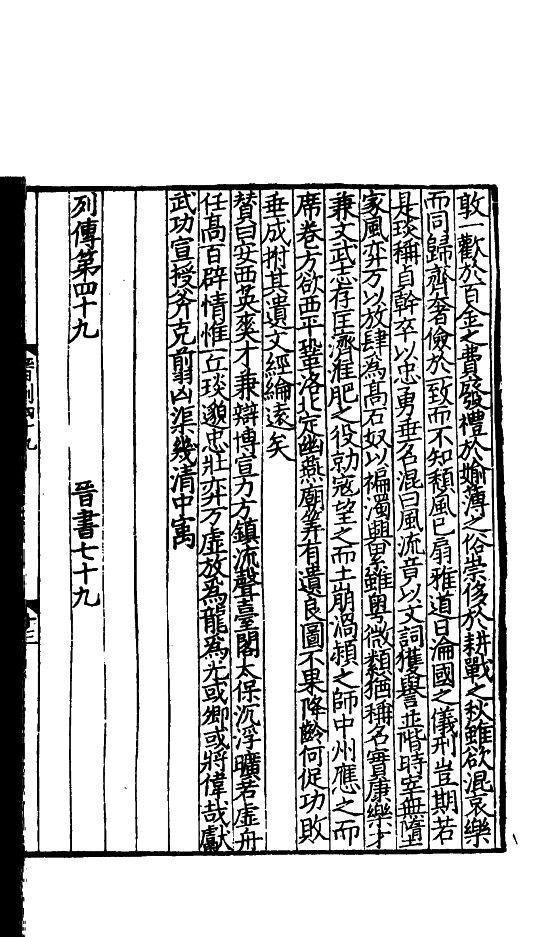 敢一歡於百金之費發禮於媮薄之俗崇侈於耕戰之秋雖欲混哀樂
而同歸齊奢儉於一致而不知頹風已扇雅道日淪國之儀刑豈期若
是琰稱貞幹卒以忠勇垂名混曰風流音以文詞獲譽並階時宰無墮
家風弈万以放肆為高石奴以褊濁興累雖粵微纇猶稱名實康樂才
兼文武志存匡濟淮肥之役勍寇望之而土崩渦潁之師中州應之而
席卷方欲西平鞏洛北定幽燕廟筭有遺良圖不果降齡何促功敗
垂成拊其遺文經綸遠矣
贊曰安西英爽才兼辯博宣力方鎮流聲臺閣太保沉浮曠若虛舟
任高百辟情惟一丘琰邈忠壯弈万虛放為龍為光或卿或將偉哉獻
武功宣授斧克翦凶渠幾清中寓
列傳第四十九 晉書七十九
晉列四十九
十三